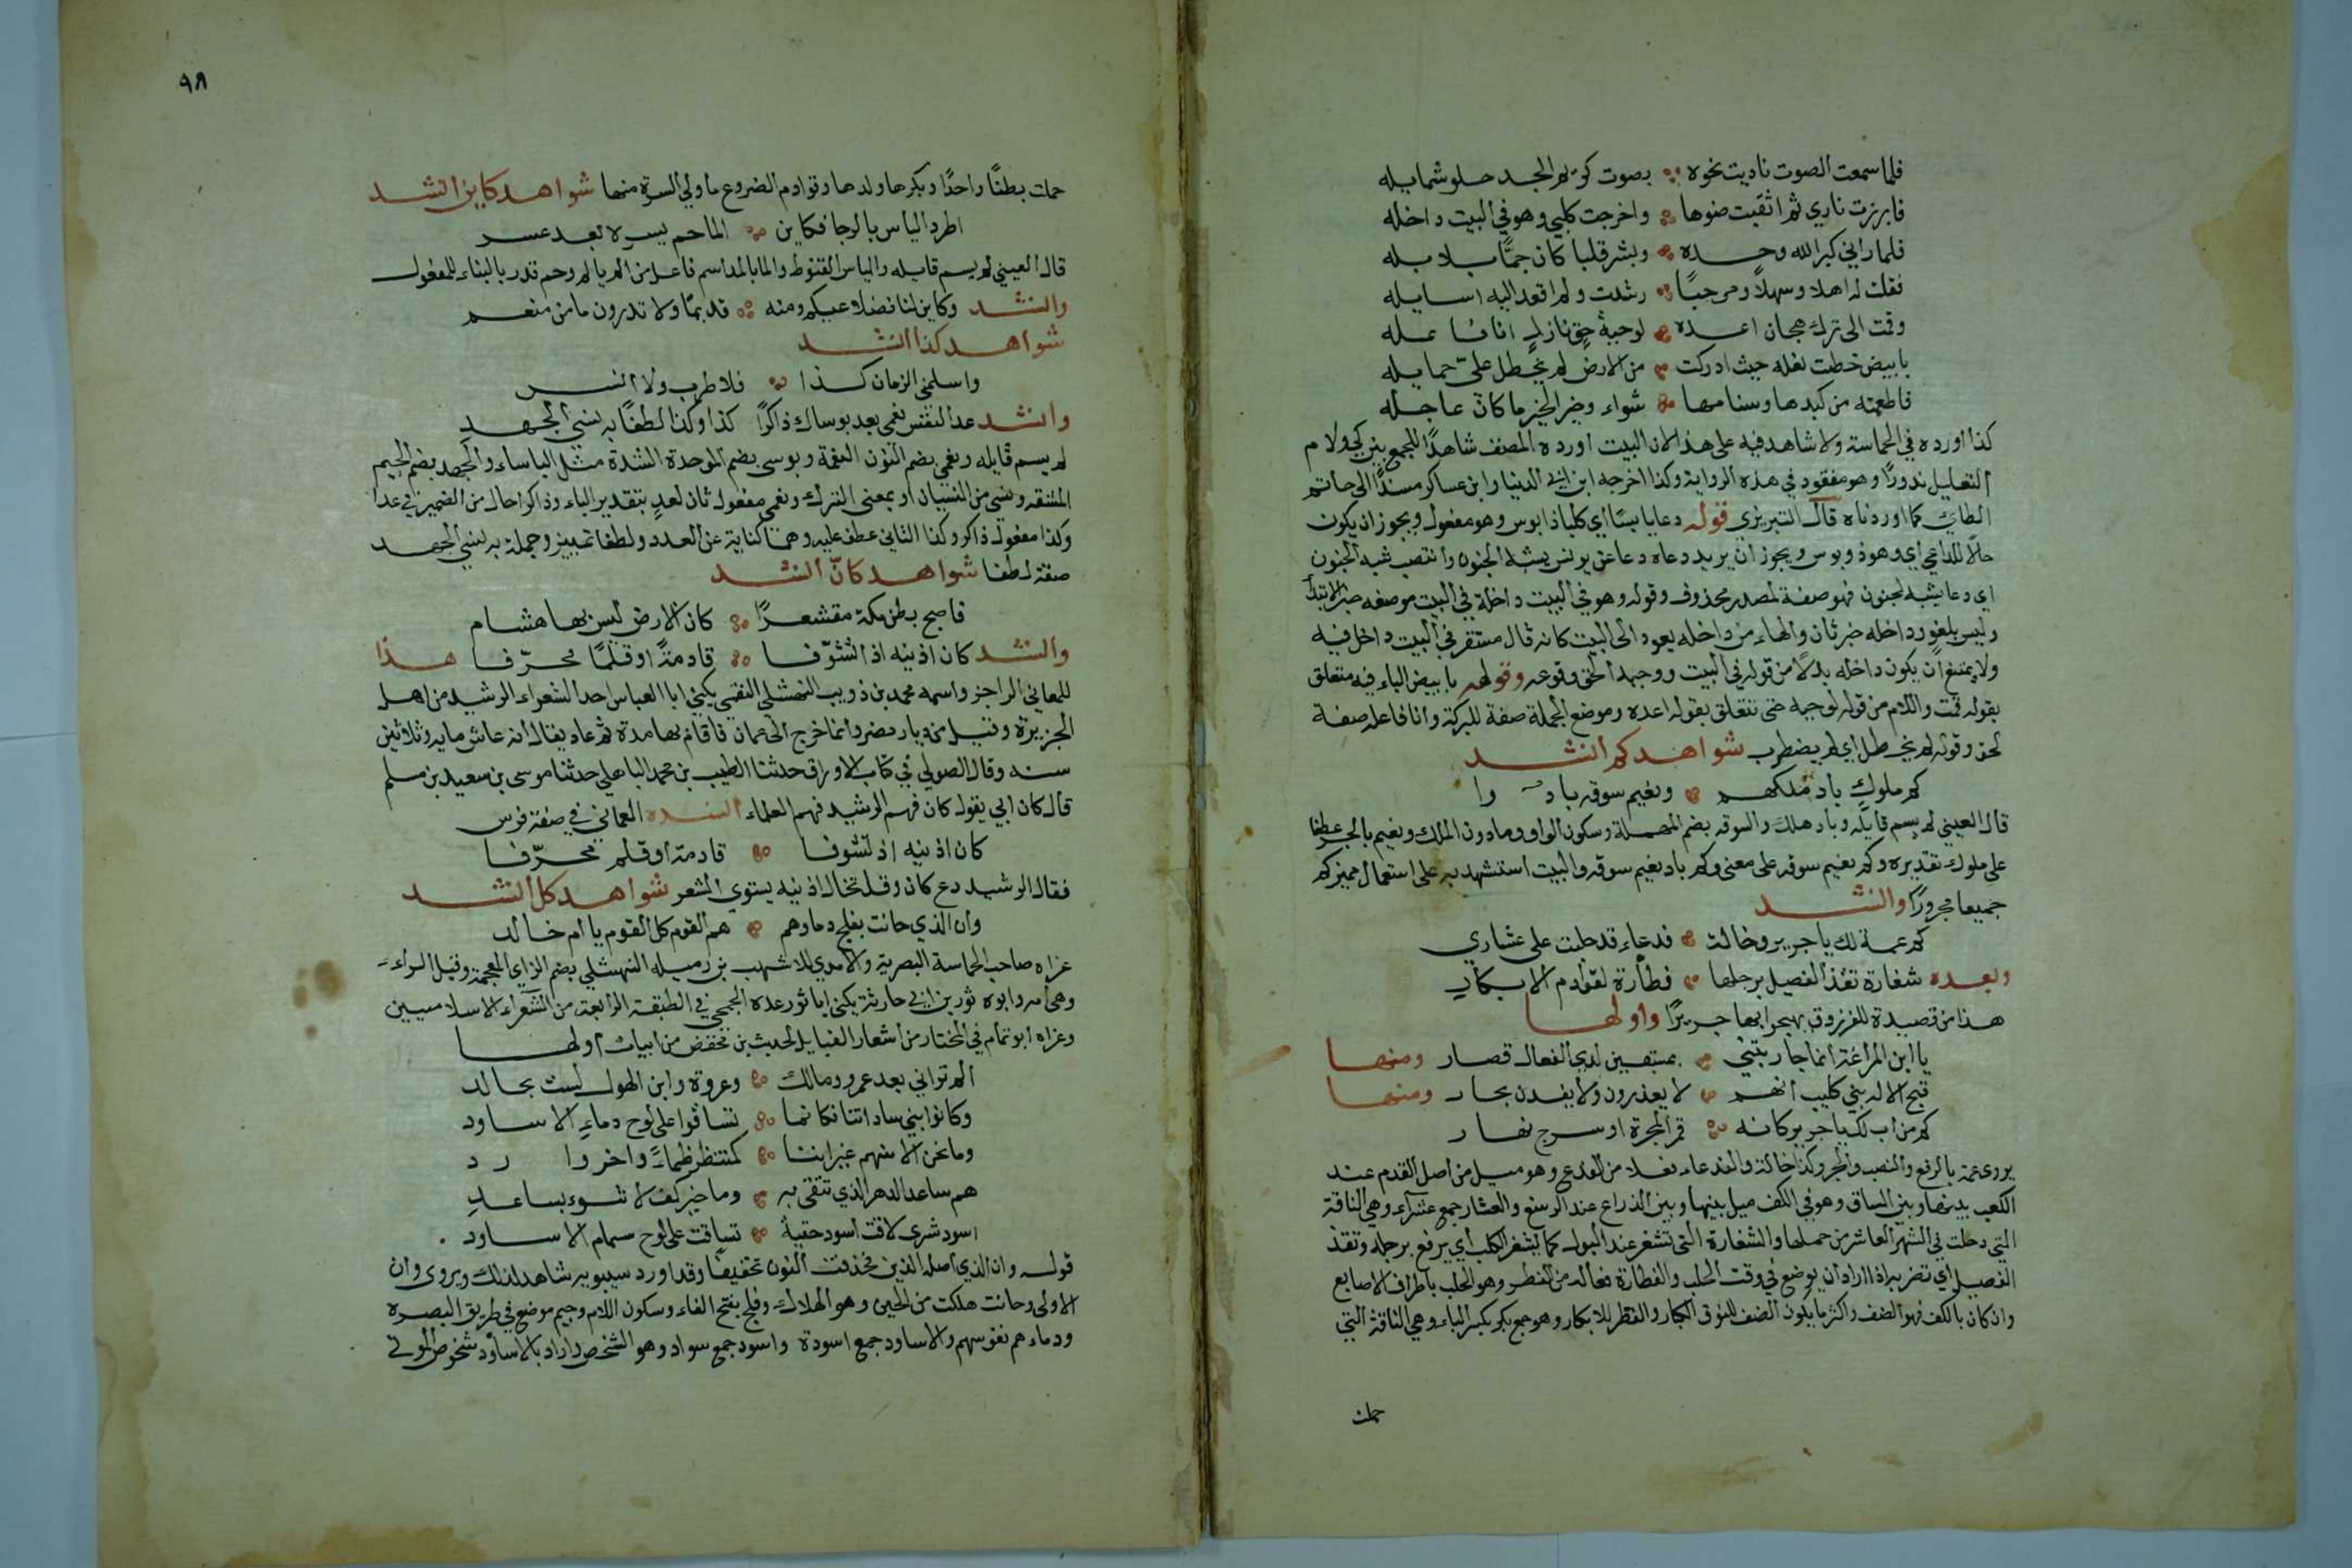 فلما سمعت الصوت ناديت نحوه بصوت كريم الجد حلو شمايله
فابرزت ناري ثم اثقبت ضوها واخرجت كلبي وهو في البيت داخله
فلما راني كبر الله وحده وبشر قلبا كان جمًّا بلابله
فقلت له اهلا وسهلاً ومرحبًا رشدت ولم اقعد اليه اسايله
وقمت الى برك هجان اعده لوجبة حق نازل انا فاعله
بابيض خطت نعله حيث ادركت من الارض لم يخطل عليّ حمايله
فاطعمته من كبدها وسنامها شواء وخير الخير ما كان عاجله
كذا اورده في الحماسة ولا شاهد فيه على هذا لان البيت اورده المصنف شاهدًا للجمع بين كي ولام
التعليل ندورًا وهو مفقود في هذه الرواية وكذا اخرجه ابن ابي الدنيا وابن عساكر مسندًا الى حاتم
الطاي كما اوردناه قال التبريزي قوله دعا يابسًا اي كلبا ذا بوس وهو مفعول ويجوز ان يكون
حالًا للداعي اي وهو ذو بوس ويجوز ان يريد دعاه دعا عن يونس يشبه الجنون وانتصب شبه الجنون
اي دعا يشبه الجنون فهو صفة لمصدر محذوف وقوله وهو في البيت داخله في البيت موضعه خبر الابتدا
وليس بلغو وداخله خبر ثان والهاء من داخله يعود الى البيت كانه قال مستقر في البيت داخل فيه
ولا يمتنع ان يكون داخله بدلًا من قوله في البيت ووجبة الحق وقوعه وقوله بابيض الباء فيه متعلق
بقوله قمت واللام من قوله لوجبة حق تتعلق بقوله اعده وموضع الجملة صفة للبركة وانا فاعله صفة
لحق وقوله لم يخطل اي لم يضطرب شواهد كم أنشد
كم ملوك باد ملكهم ونعيم سوقه باد وا
قال العيني لم يسم قايله وباد هلك والسوقه بضم المهملة وسكون الواو وما دون الملك ونعيم بالجر عطفا
على ملوك تقديره وكم نعيم سوقه على معنى وكم باد نعيم سوقه والبيت استشهد به على استعمال مميز كم
جميعا مجرورًا وانشد
كم عمة لك يا جرير وخالة فدعاء قد حلبت على عشاري
وبعده شغارة تقذ الفصيل برجلها فطارة لقوادم الابكار
هذا من قصيدة للفرزدق يهجو بها جريرًا واولها
يا ابن المراغة انما جاريتني بمسبقين لدي الفعال قصار ومنها
قبح الاله بني كليب انهم لا يعذرون ولا يفدن بجار ومنها
كم من اب لك يا جرير كانه قمر المجرة او سرج نهار
يروى عمة بالرفع والنصب والجر وكذا خالة والفدعاء فعلا من الفدع وهو ميل من اصل القدم عند
الكعب بينها وبين الساق وهو في الكف ميل بينها وبين الذراع عند الرسغ والعشار جمع عشراء وهي الناقة
التي دخلت في الشهر العاشر من حملها والشغارة التي تشغر عند البول كما يشغر الكلب اي يرفع برجله وتقذ
الفصيل اي تضربه اذا اراد ان يرضع في وقت الحلب والفطارة فعاله من الفطر وهو الحلب باطراف الاصابع
وان كان بالكف فهو الضف واكثر ما يكون الضف للنوق الكبار والفطر للابكار وهو جمع بكر بكسر الباء وهي الناقة التي
حملت
٩٨
حملت بطنًا واحدًا وبكرها ولدها وقوادم الضروع ما ولي السرة منها شواهد كاين انشد
اطرد الياس بالرجا فكاين الما حم يسره بعد عسر
قال العيني لم يسم قايله والياس القنوط والما بالمد اسم فاعل من الم يالم وحم قدر بالبناء للمفعول
وانشد وكاين لنا فضلا عليكم ومنه قديمًا ولا تدرون ما من منعم
شواهد كذا انشد
واسلمني الزمان كذا فلا طرب ولا انس
وانشد عد النفس نعمى بعد بوساك ذاكرًا كذا وكذا لطفًا به نسي الجهد
لم يسم قايله ونعمى بضم النون النعمة وبوسى بضم الموحدة الشدة مثل الباساء والجهد بضم الجيم
المشقه ونسي من النسيان او بمعنى الترك ونعمى مفعول ثان لعد بتقدير الباء وذاكرا حال من الضمير في عد
وكذا مفعول ذاكر وكذا الثاني عطف عليه وهما كناية عن العدد ولطفا تمييز وجملة به نسي الجهد
صفة لطفا شواهد كانّ انشد
فاصبح بطن مكة مقشعرًا كان الارض ليس بها هشام
وانشد كان اذنيه اذا تشوّفا قادمةً او قلمًا محرّفا هذا
للعماني الراجز واسمه محمد بن ذويب النهشلي الفقمي يكنى ابا العباس احد الشعراء الرشيد من اهل
الجزيرة وقيل من ديار مضر وانما خرج الى عمان فاقام بها مدة ثم عاد يقال انه عاش مايه وثلاثين
سنه وقال الصولي في كتاب الاوراق حدثنا الطيب بن محمد الباهلي حدثنا موسى بن سعيد بن مسلم
قال كان ابي يقول كان فهم الرشيد فهم العلماء انشده العماني في صفة فرس
كان اذنيه اذ تشوفا قادمة او قلم محرّفا
فقال الرشيد دع كان وقل تخال اذنيه يستوي الشعر شواهد كل انشد
وان الذي حانت بفلج دماوهم هم القوم كل القوم يا ام خالد
عزاه صاحب الحماسة البصرية والامدي للاشهب بن رميله النهشلي بضم الزاي المعجمة وقبل الراء
وهي امه وابوه ثور بن ابي حارثة يكنى ابا ثور عده الجمحي في الطبقة الرابعة من الشعراء الاسلاميين
وعزاه ابو تمام في المختار من اشعار القبايل لحديث بن مخفض من ابيات اولها
الم تراني بعد عمرو ومالك وعروة وابن الهول لست بخالد
وكانوا بني ساداتنا فكانما تساقوا على لوح دماء الاساود
وما نحن الا منهم غير اننا كمنتظر ظماً واخر وا رد
هم ساعد الدهر الذي تتقى به وما خير كف لا تنوء بساعد
اسود شرى لاقت اسود خفية تساقت على لوح سمام الاساود
قوله وان الذي اصله الذين فحذفت النون تخفيفًا وقد اورد سيبويه شاهدا لذلك ويروى وان
الاولى وحانت هلكت من الحين وهو الهلاك وفلج بفتح الفاء وسكون اللام وجيم موضع في طريق البصره
ودماءهم نفوسهم والاساود جمع اسودة واسود جمع سواد وهو الشخص واراد بالاساود شخوص الموتى